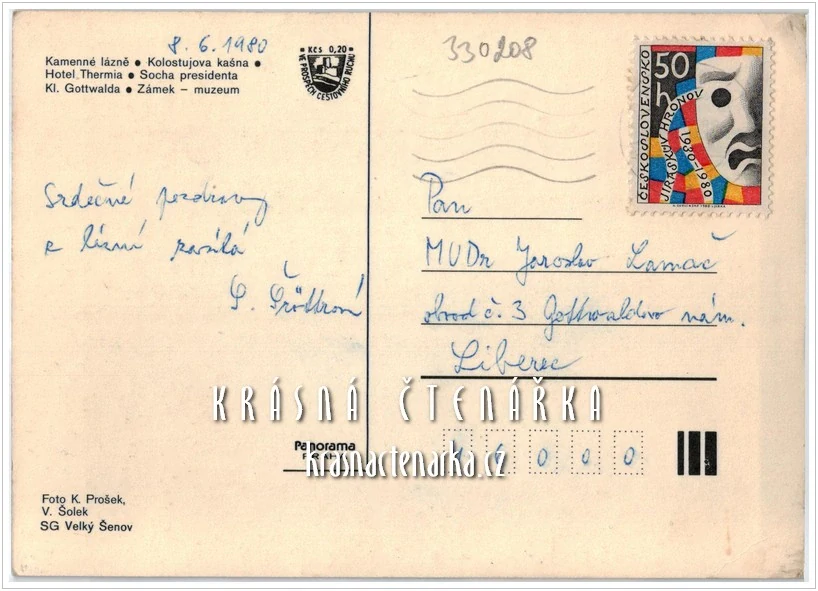 8.6.1980
330208
Kamenné lázně ● Kolostujova kašna ●
Hotel Thermia ● Socha presidenta
Kl. Gottwalda ● Zámek – muzeum
Kčs 0,20
VE PROSPĚCH CESTOVNÍHO RUCHU
50 h
ČESKOSLOVENSKO
JIRÁSKŮV HRONOV
1930-1980
Srdečné pozdravy
z lázní zasílá
Pan
MUDr Jaroslav Lamač
obvod č. 3 Gottwaldovo nám.
Liberec
KRÁSNÁ ČTENÁŘKA
Panorama
krasnactenarka.cz
46000
Foto K. Prošek,
V. Šolek
SG Velký Šenov